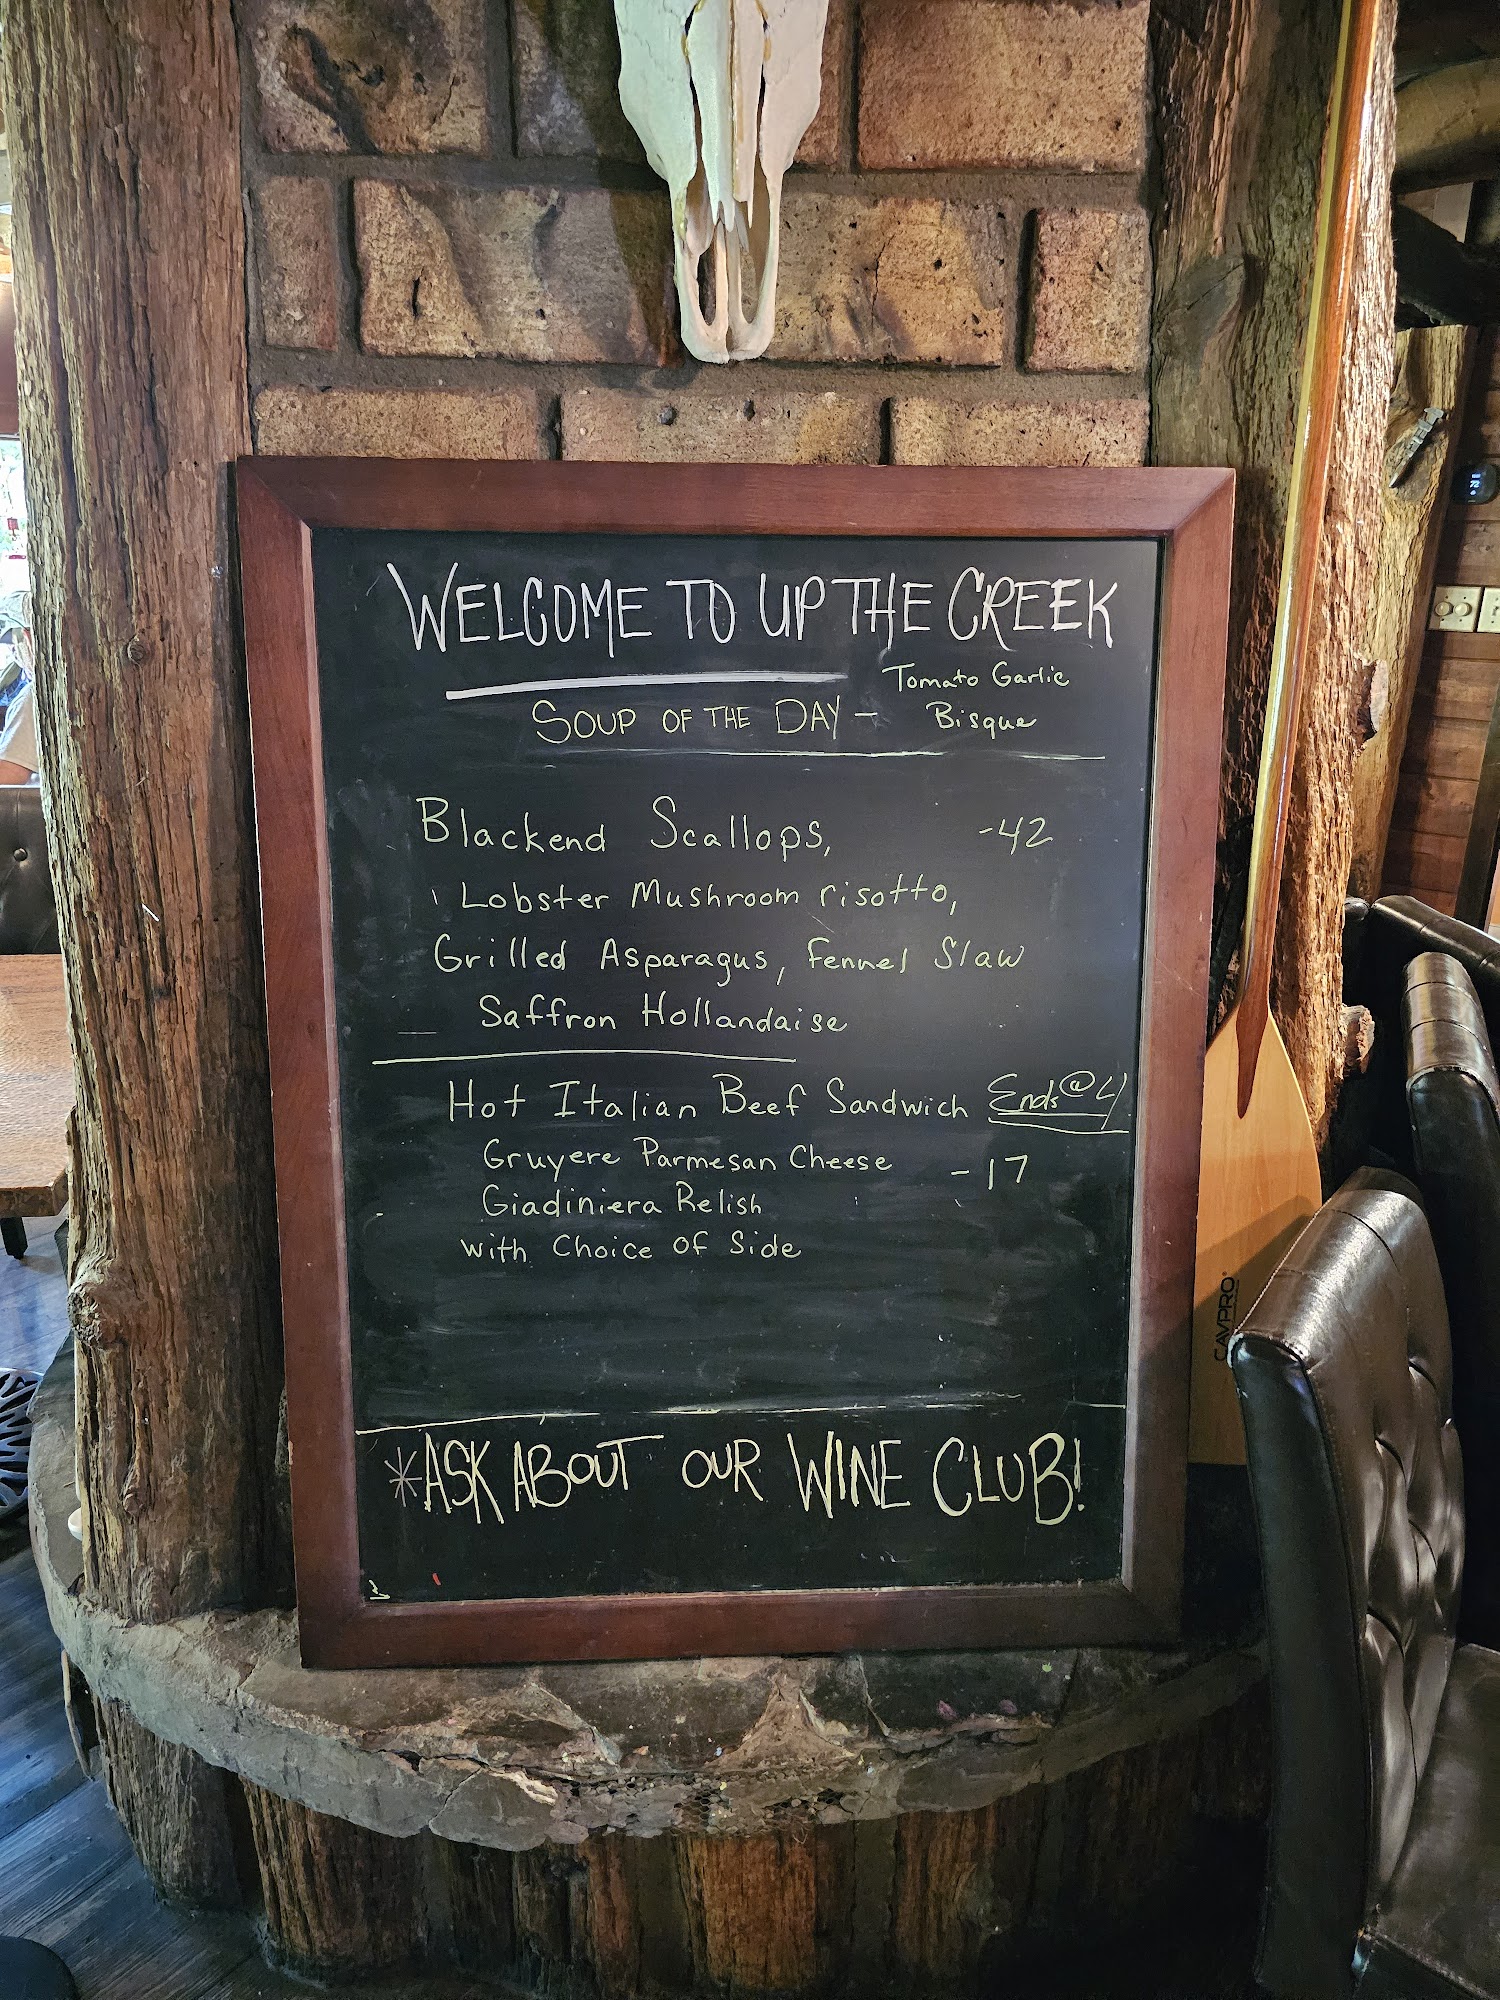 WELCOME TO UP THE CREEK
SOUP OF THE DAY - Tomato Garlic
Bisque
Blackend Scallops, -42
Lobster Mushroom risotto,
Grilled Asparagus, Fennel Slaw
Saffron Hollandaise
Hot Italian Beef Sandwich Ends @ 4
Gruyere Parmesan Cheese -17
Giadiniera Relish
with Choice of Side
*ASK ABOUT OUR WINE CLUB!
CAVPRO
72